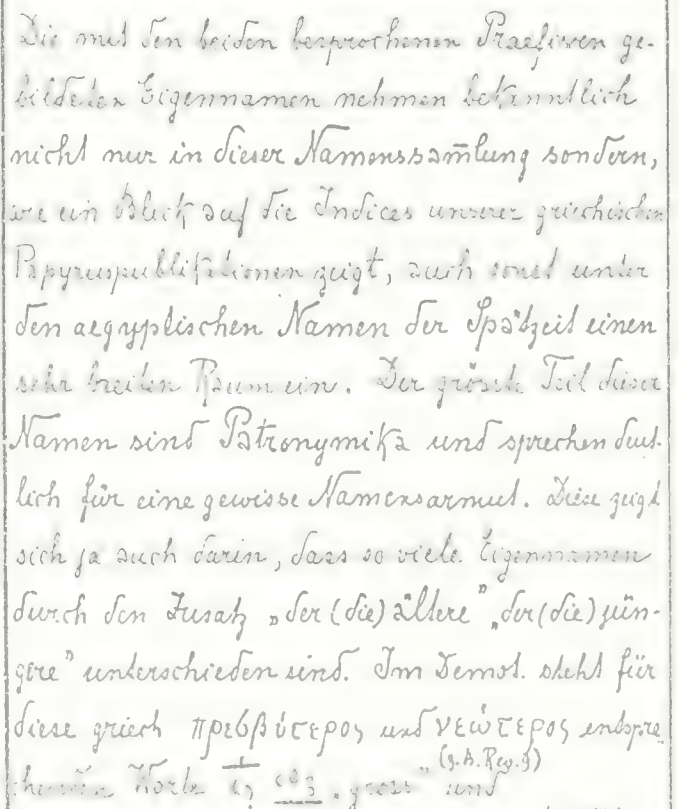 Die mit den beiden besprochenen Praefixen ge-
bildeten Eigennamen nehmen bekanntlich
nicht nur in dieser Namenssam̄lung sondern,
wie ein Blick auf die Indices unserer griechischen
Papyruspublikationen zeigt, auch sonst unter
den aegyptischen Namen der Spätzeit einen
sehr breiten Raum ein. Der grösste Teil dieser
Namen sind Patronymika und sprechen deut-
lich für eine gewisse Namensarmut. Diese zeigt
sich ja auch darin, dass so viele Eigennamen
durch den Zusatz „der (die) ältere” „der (die) jün-
gere” unterschieden sind. Im Demot. steht für
diese griech πρεσβύτερος und νεώτερος entspre
chenden Worte „gross” und
(z.B. Reg. 9)